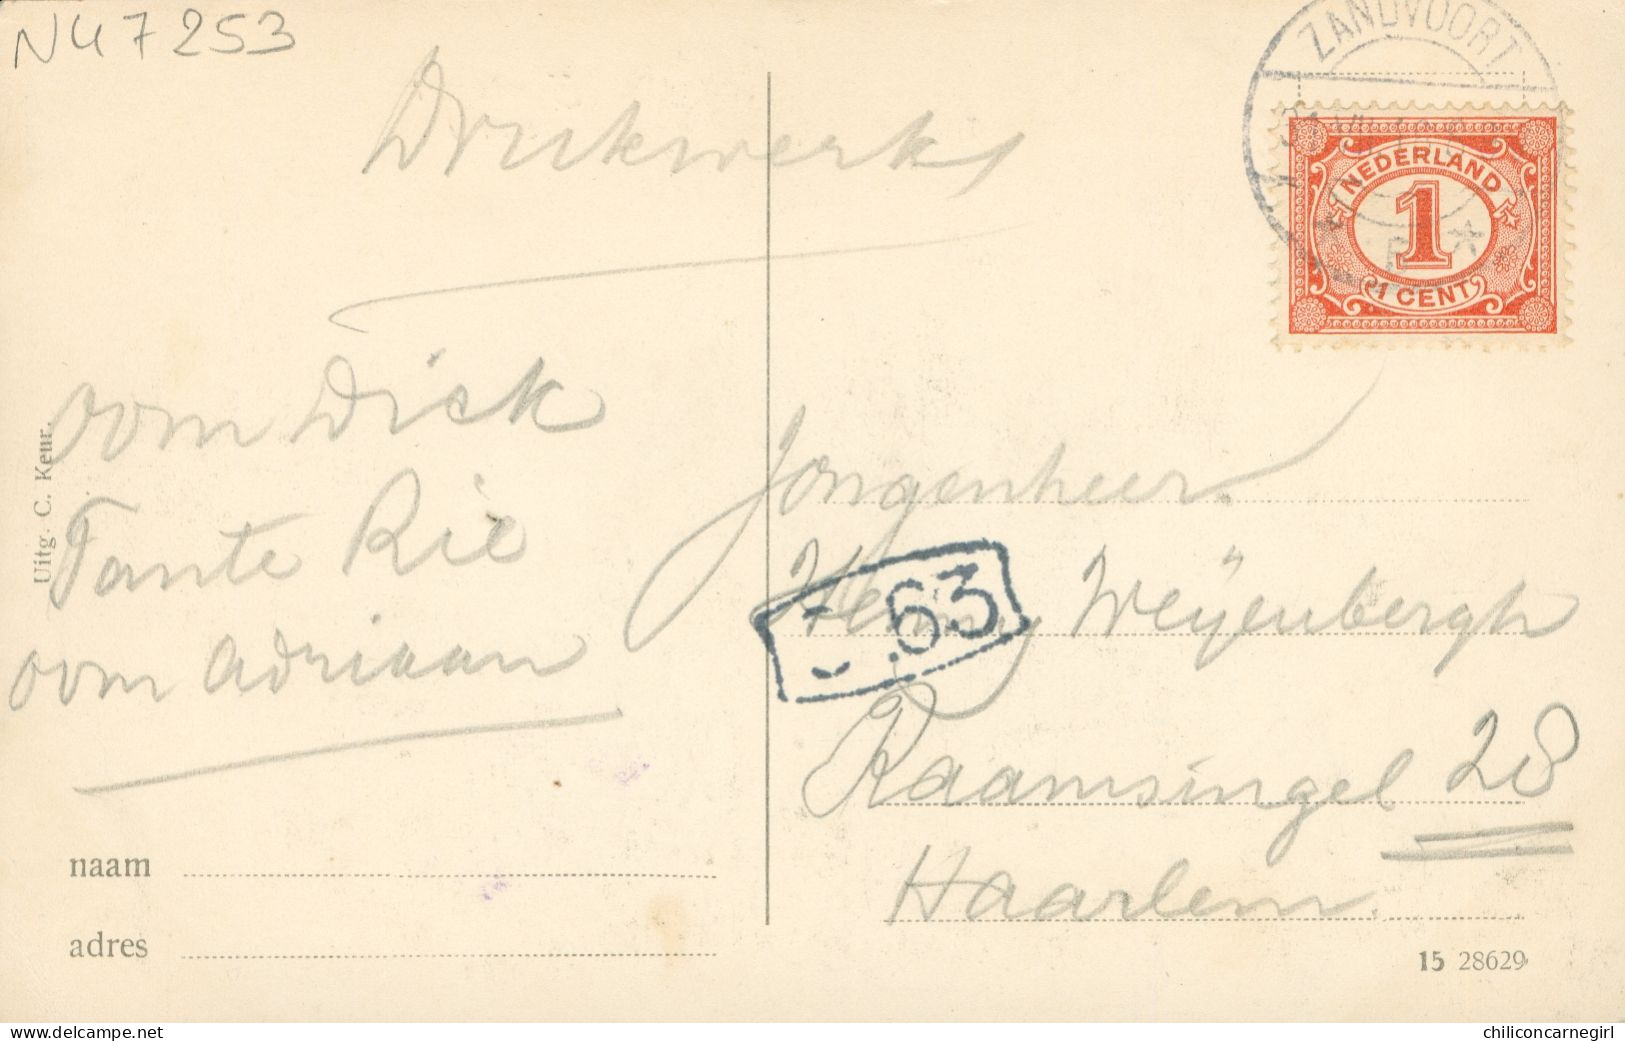 NU 7253
Drukwerk
ZANDVOORT
NEDERLAND
1
1 CENT
oom Dick
Tante Rie
oom Adriaan
Uitg. C. Keur.
Jongenheer
Henny Weÿenbergh
.63
Raamsingel 28
Haarlem.
naam
adres
15 28629
www.delcampe.net
chiliconcarnegirl